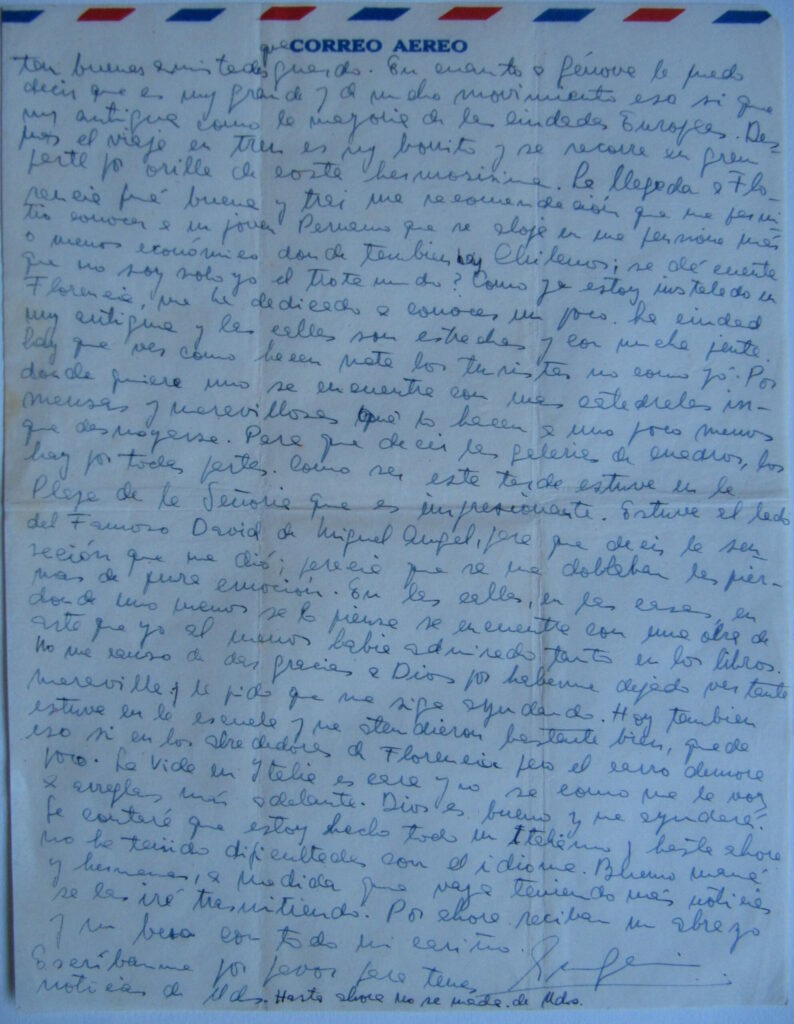 CORREO AEREO
tan buenas amistades que guardo. En cuanto a Génova le puedo
decir que es muy grande y de mucho movimiento eso si que
muy antigua como la mayoria de las ciudades Europeas. Des-
pues el viaje en tren es muy bonito y se recorre en gran
parte por orilla de costa hermosisima. La llegada a Flo-
rencia fué buena y traí una recomendación que me permi-
tio conocer a un joven Peruano que se aloja en una pensione más
o menos económico donde tambien hay Chilenos; se dá cuenta
que no soy solo yo el trota mundo? Como ya estoy instalado en
Florencia, me he dedicado a conocer un poco. La ciudad
muy antigua y las calles son estrechas y con mucha jente.
hay que ver como hacen nata los turistas no como yo. Por
donde quiera uno se encuentra con unas catedrales in-
mensas y maravillosas que lo hacen a uno poco menos
que desmayarse. Para que decir las galerias de cuadros, los
hay por todas partes. Como ser esta tarde estuve en la
Plaza de la Señoria que es impresionante. Estuve al lado
del Famoso David de Miguel Angel, para que decir la sen-
sación que me dió; parecia que se me doblaban las pier-
nas de pura emoción. En las calles, en las casas, en
donde uno menos se lo piensa se encuentra con una obra de
arte que yo al menos habia admirado tanto en los libros.
No me canso de dar gracias a Dios por haberme dejado ver tanta
maravilla y le pido que me siga ayudando. Hoy tambien
estuve en la escuela y me atendieron bastante bien, queda
eso si en los alrededores de Florencia pero el carro demora
poco. La vida en Italia es cara y no se como me la voy
a arreglar más adelante. Dios es bueno y me ayudará.
Le contaré que estoy hecho todo un Italiano y hasta ahora
no he tenido dificultades con el idioma. Bueno mamá
y hermanas, a medida que vaya teniendo más noticias
se las iré trasmitiendo. Por ahora reciban un abrazo
y un beso con todo mi cariño.
Escríbanme por favor para tener
noticias de Uds. Hasta ahora no se nada de Uds.